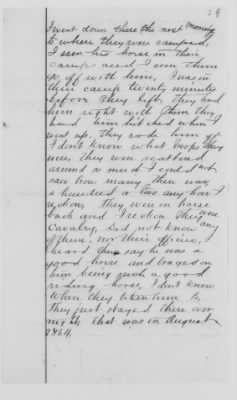 I went down there the next morning
to where they were camped,
I seen his horse in their
camp and I seen them
go off with him, I was in
their camp twenty minutes
before they left, they had
him right with them they
had him hitched when I
went up, they rode him off
I don't know what troops they
was, they were scattered
around so much I could not
see how many there was,
a hundred or two any how I
reckon, They were on horse
back and I reckon they were
Cavalry, Did not know any
of them, nor their officers, I
heard them say he was a
good horse and bragged on
him being such a good
riding horse, I don't know
where they taken him to,
They just stayed there over
night, that was in August
1864.